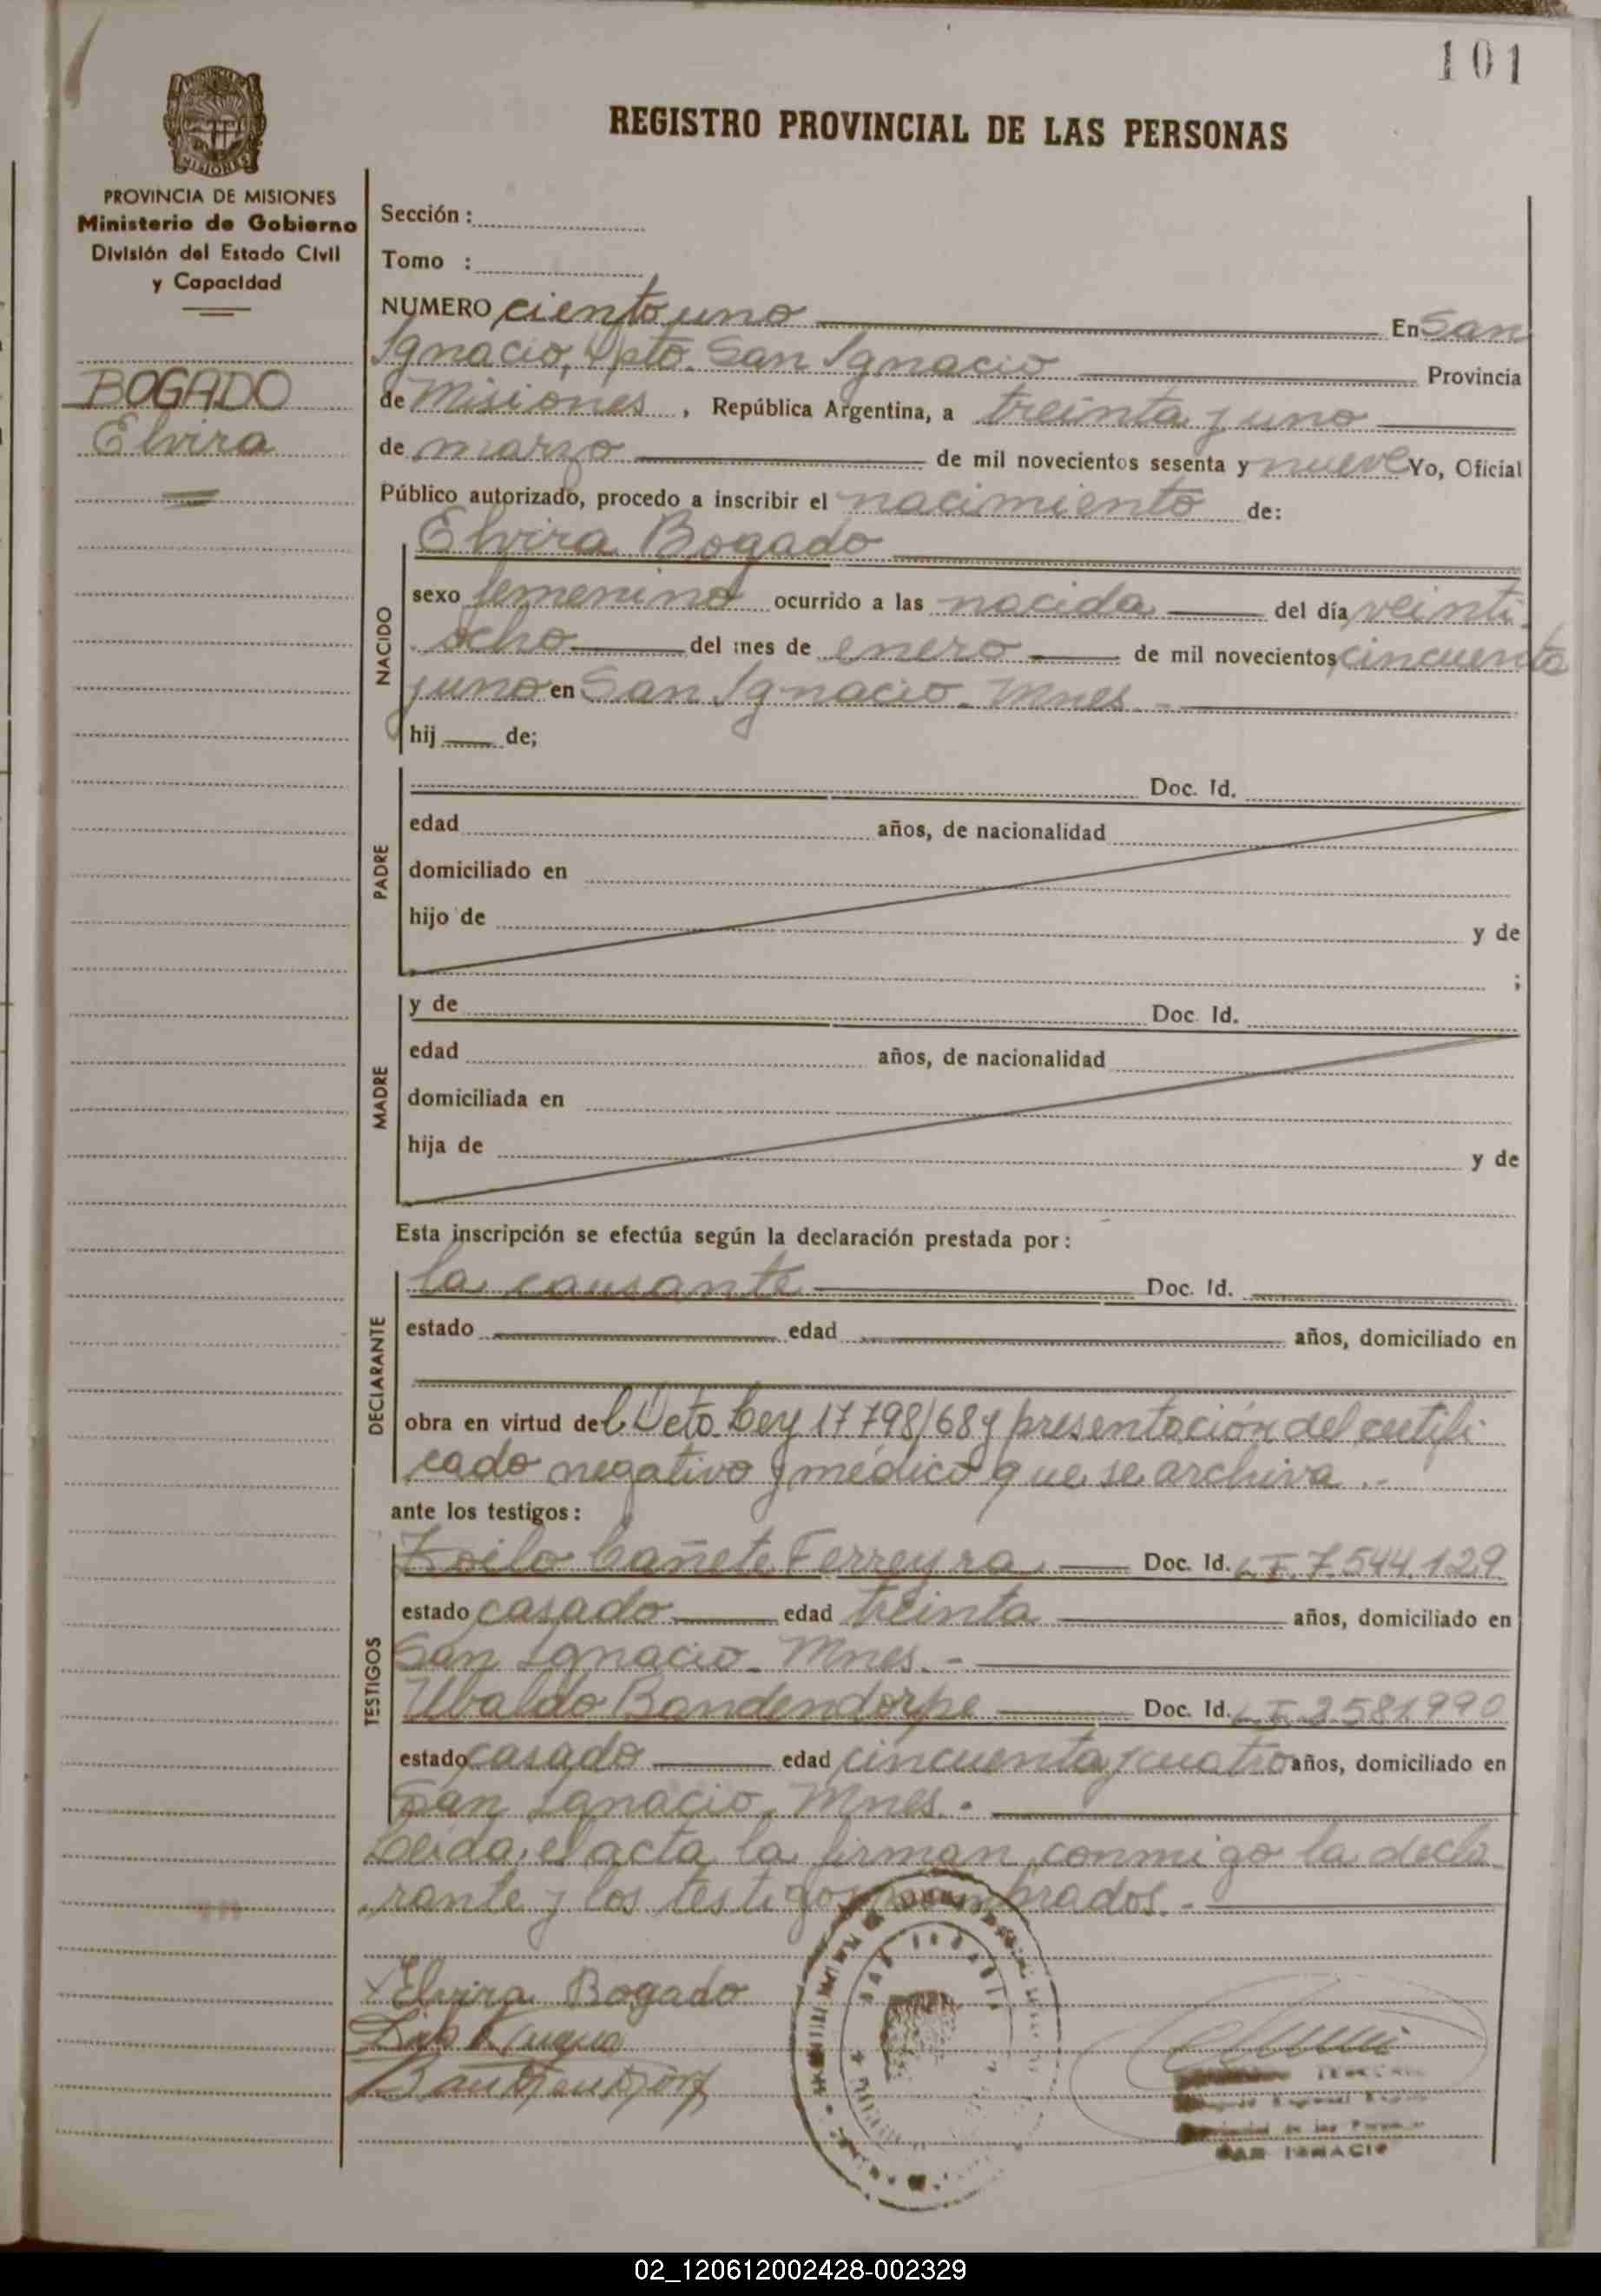 101
REGISTRO PROVINCIAL DE LAS PERSONAS
PROVINCIA DE MISIONES
Ministerio de Gobierno
División del Estado Civil
y Capacidad
BOGADO
Elvira
Sección :
Tomo :
NUMERO ciento uno En San
Ignacio, Dpto. San Ignacio Provincia
de Misiones, República Argentina, a treinta y uno
de marzo de mil novecientos sesenta y nueve Yo, Oficial
Público autorizado, procedo a inscribir el nacimiento de:
Elvira Bogado
NACIDO
sexo femenino ocurrido a las nacida del día veinti
ocho del mes de enero de mil novecientos cincuenta
y uno en San Ignacio. Mnes. -
hij de;
PADRE
Doc. Id.
edad años, de nacionalidad
domiciliado en
hijo de y de
;
MADRE
y de Doc. Id.
edad años, de nacionalidad
domiciliada en
hija de y de
Esta inscripción se efectúa según la declaración prestada por :
DECLARANTE
la causante Doc. Id.
estado edad años, domiciliado en
obra en virtud del Dcto. Ley 17798/68 y presentación del certifi
cado negativo y médico que se archiva .-
ante los testigos :
TESTIGOS
Zoilo Cañete Ferreyra Doc. Id. L.E. 7.544.129
estado casado edad treinta años, domiciliado en
San Ignacio. Mnes. -
Ubaldo Bandendorpe Doc. Id. L.E. 2581990
estado casado edad cincuenta y cuatro años, domiciliado en
San Ignacio, Mnes. -
Leida el acta la firman conmigo la decla
rante y los testigos nombrados. -
x Elvira Bogado
SAN IGNACIO
02_120612002428-002329